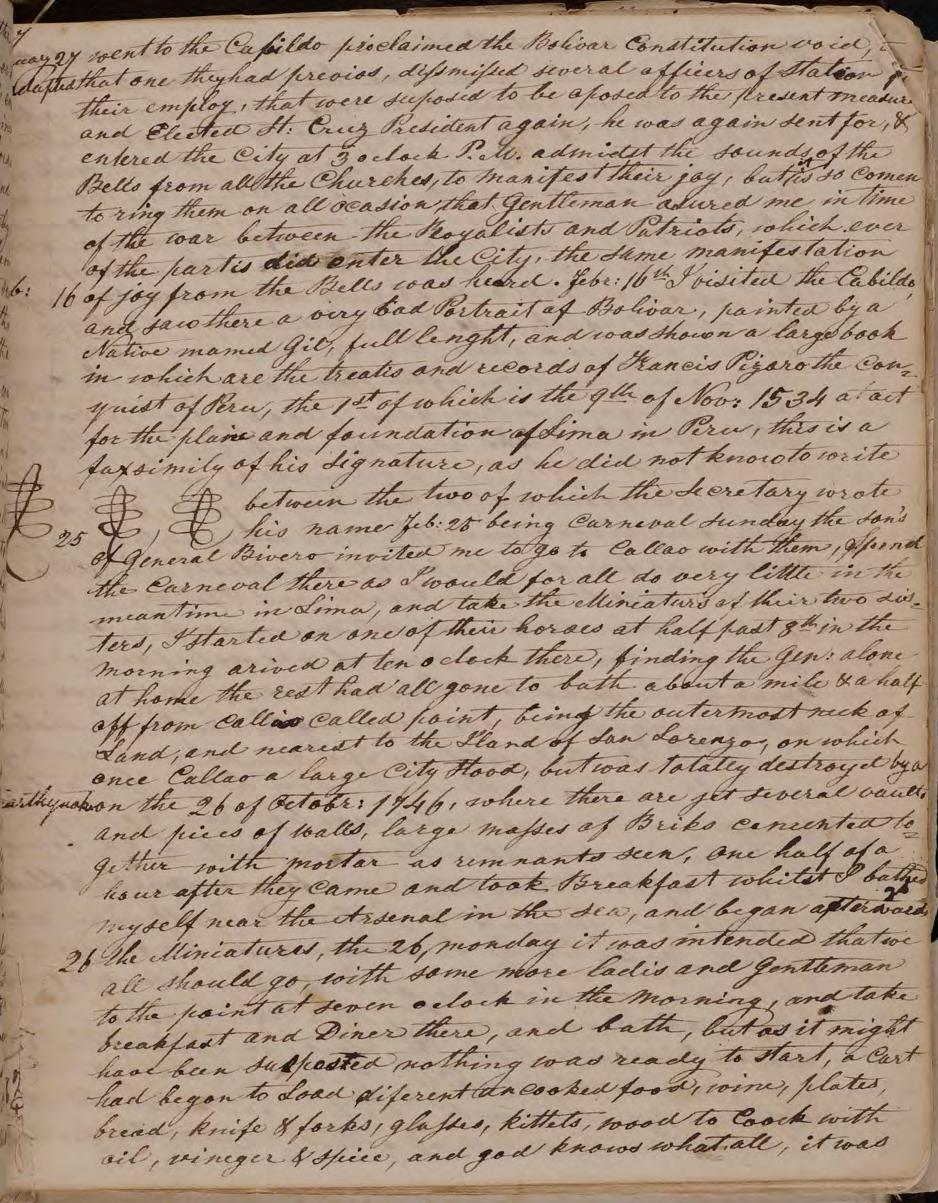 27 went to the Cabildo proclaimed the Bolivar Constitution void,
adapted that one they had previos, dissmissed several officers of Station
their employ, that were suposed to be aposed to the present measure
and Elected St: Cruz President again, he was again sent for, &
entered the City at 3 oclock P.M. admidst the sounds of the
Bells from all the Churches, to manifest their joy, but is so comen
to ring them on all ocasion that Gentleman asured me in time
of the war between the Royalists and Patriots, which ever
of the partis did enter the City, the same manifestation
16 of joy from the Bells was heard. Febr: 16th I visited the Cabildo,
and saw there a very bad Portrait of Bolivar, painted by a
Native mamed Gil, full lenght, and was shown a large book
in which are the treatis and records of Francis Pizaro the con=
quist of Peru, the 1st of which is the 9th of Nov: 1534 at act
for the plaine and foundation of Lima in Peru, this is a
faxsimily of his Signature, as he did not know to write
between the two of which the Secretary wrote
25 his name Feb: 25 being Carneval Sunday the son's
of General Bivero invited me to go to Callao with them, spend
the Carneval there as I would for all do very little in the
meantime in Lima, and take the Miniaturs of their two sis=
ters, I started on one of their horses at half past 8th in the
morning arived at ten o clock there, finding the Gen: alone
at home the rest had all gone to bath about a mile & a half
off from Callao called point, being the outermost neck of
Land, and nearest to the Iland of San Lorenzo, on which
once Callao a large City stood, but was totally destroyed by a
earthquake on the 26 of Octobr: 1746, where there are jet several vaults
and pices of walls, large masses of Briks cemented to=
gether with mortar as remnants seen, one half of a
hour after they came and took Breakfast whilst I bathed
myself near the Arsenal in the sea, and began afterwards 2
26 the Miniatures, the 26, monday it was intended that we
all should go, with some more ladis and Gentleman
to the point at seven oclock in the morning, and take
breakfast and Diner there, and bath, but as it might
have been suspected nothing was ready to start, a Cart
had began to Load diferent uncooked food, wine, plates,
bread, knife & forks, glasses, kittels, wood to Cook with
oil, vineger & spice, and god knows what all, it was